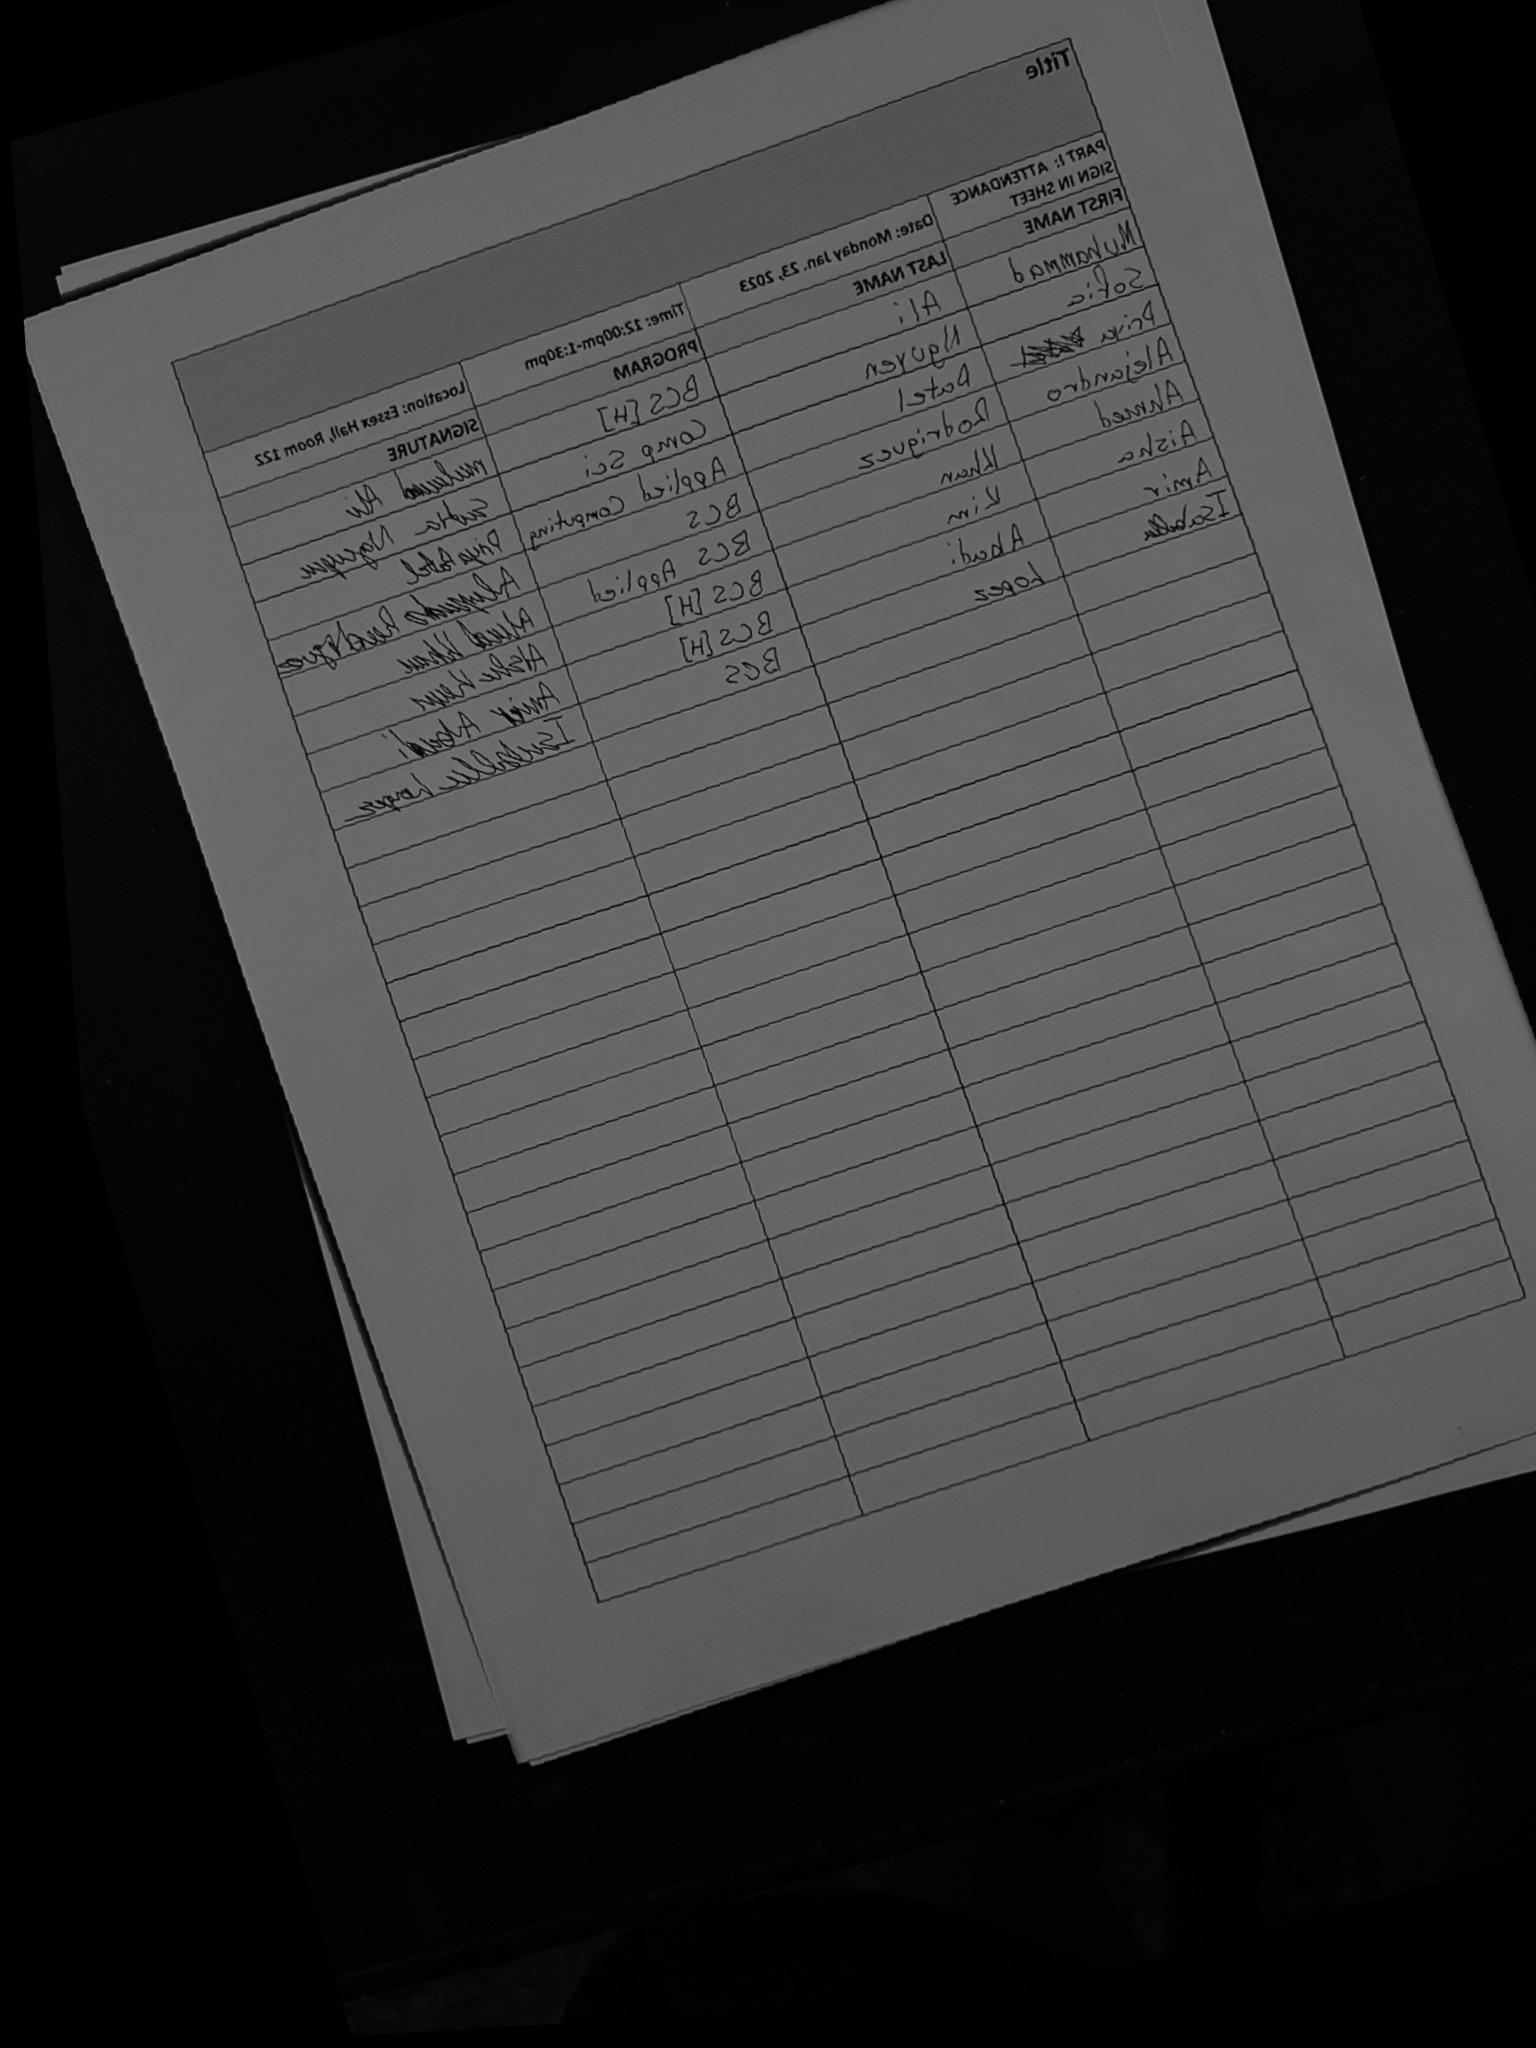 Title
PART I: ATTENDANCE SIGN IN SHEET Date: Monday Jan. 23, 2023 Time: 12:00pm-1:30pm Location: Essex Hall, Room 122
FIRST NAME LAST NAME PROGRAM SIGNATURE
Muhammad Ali BCS [H] Ali
Sofia Nguyen Comp Sci Nguyen
Priya Patel Applied Computing Priya Patel
Alejandro Rodriguez BCS Alejandro
Ahmed Khan BCS Applied Ahmed Khan
Aisha Kim BCS [H] Aisha
Amir Abadi BCS [H] Amir Abadi
Isabella Lopez BCS Isabella Lopez